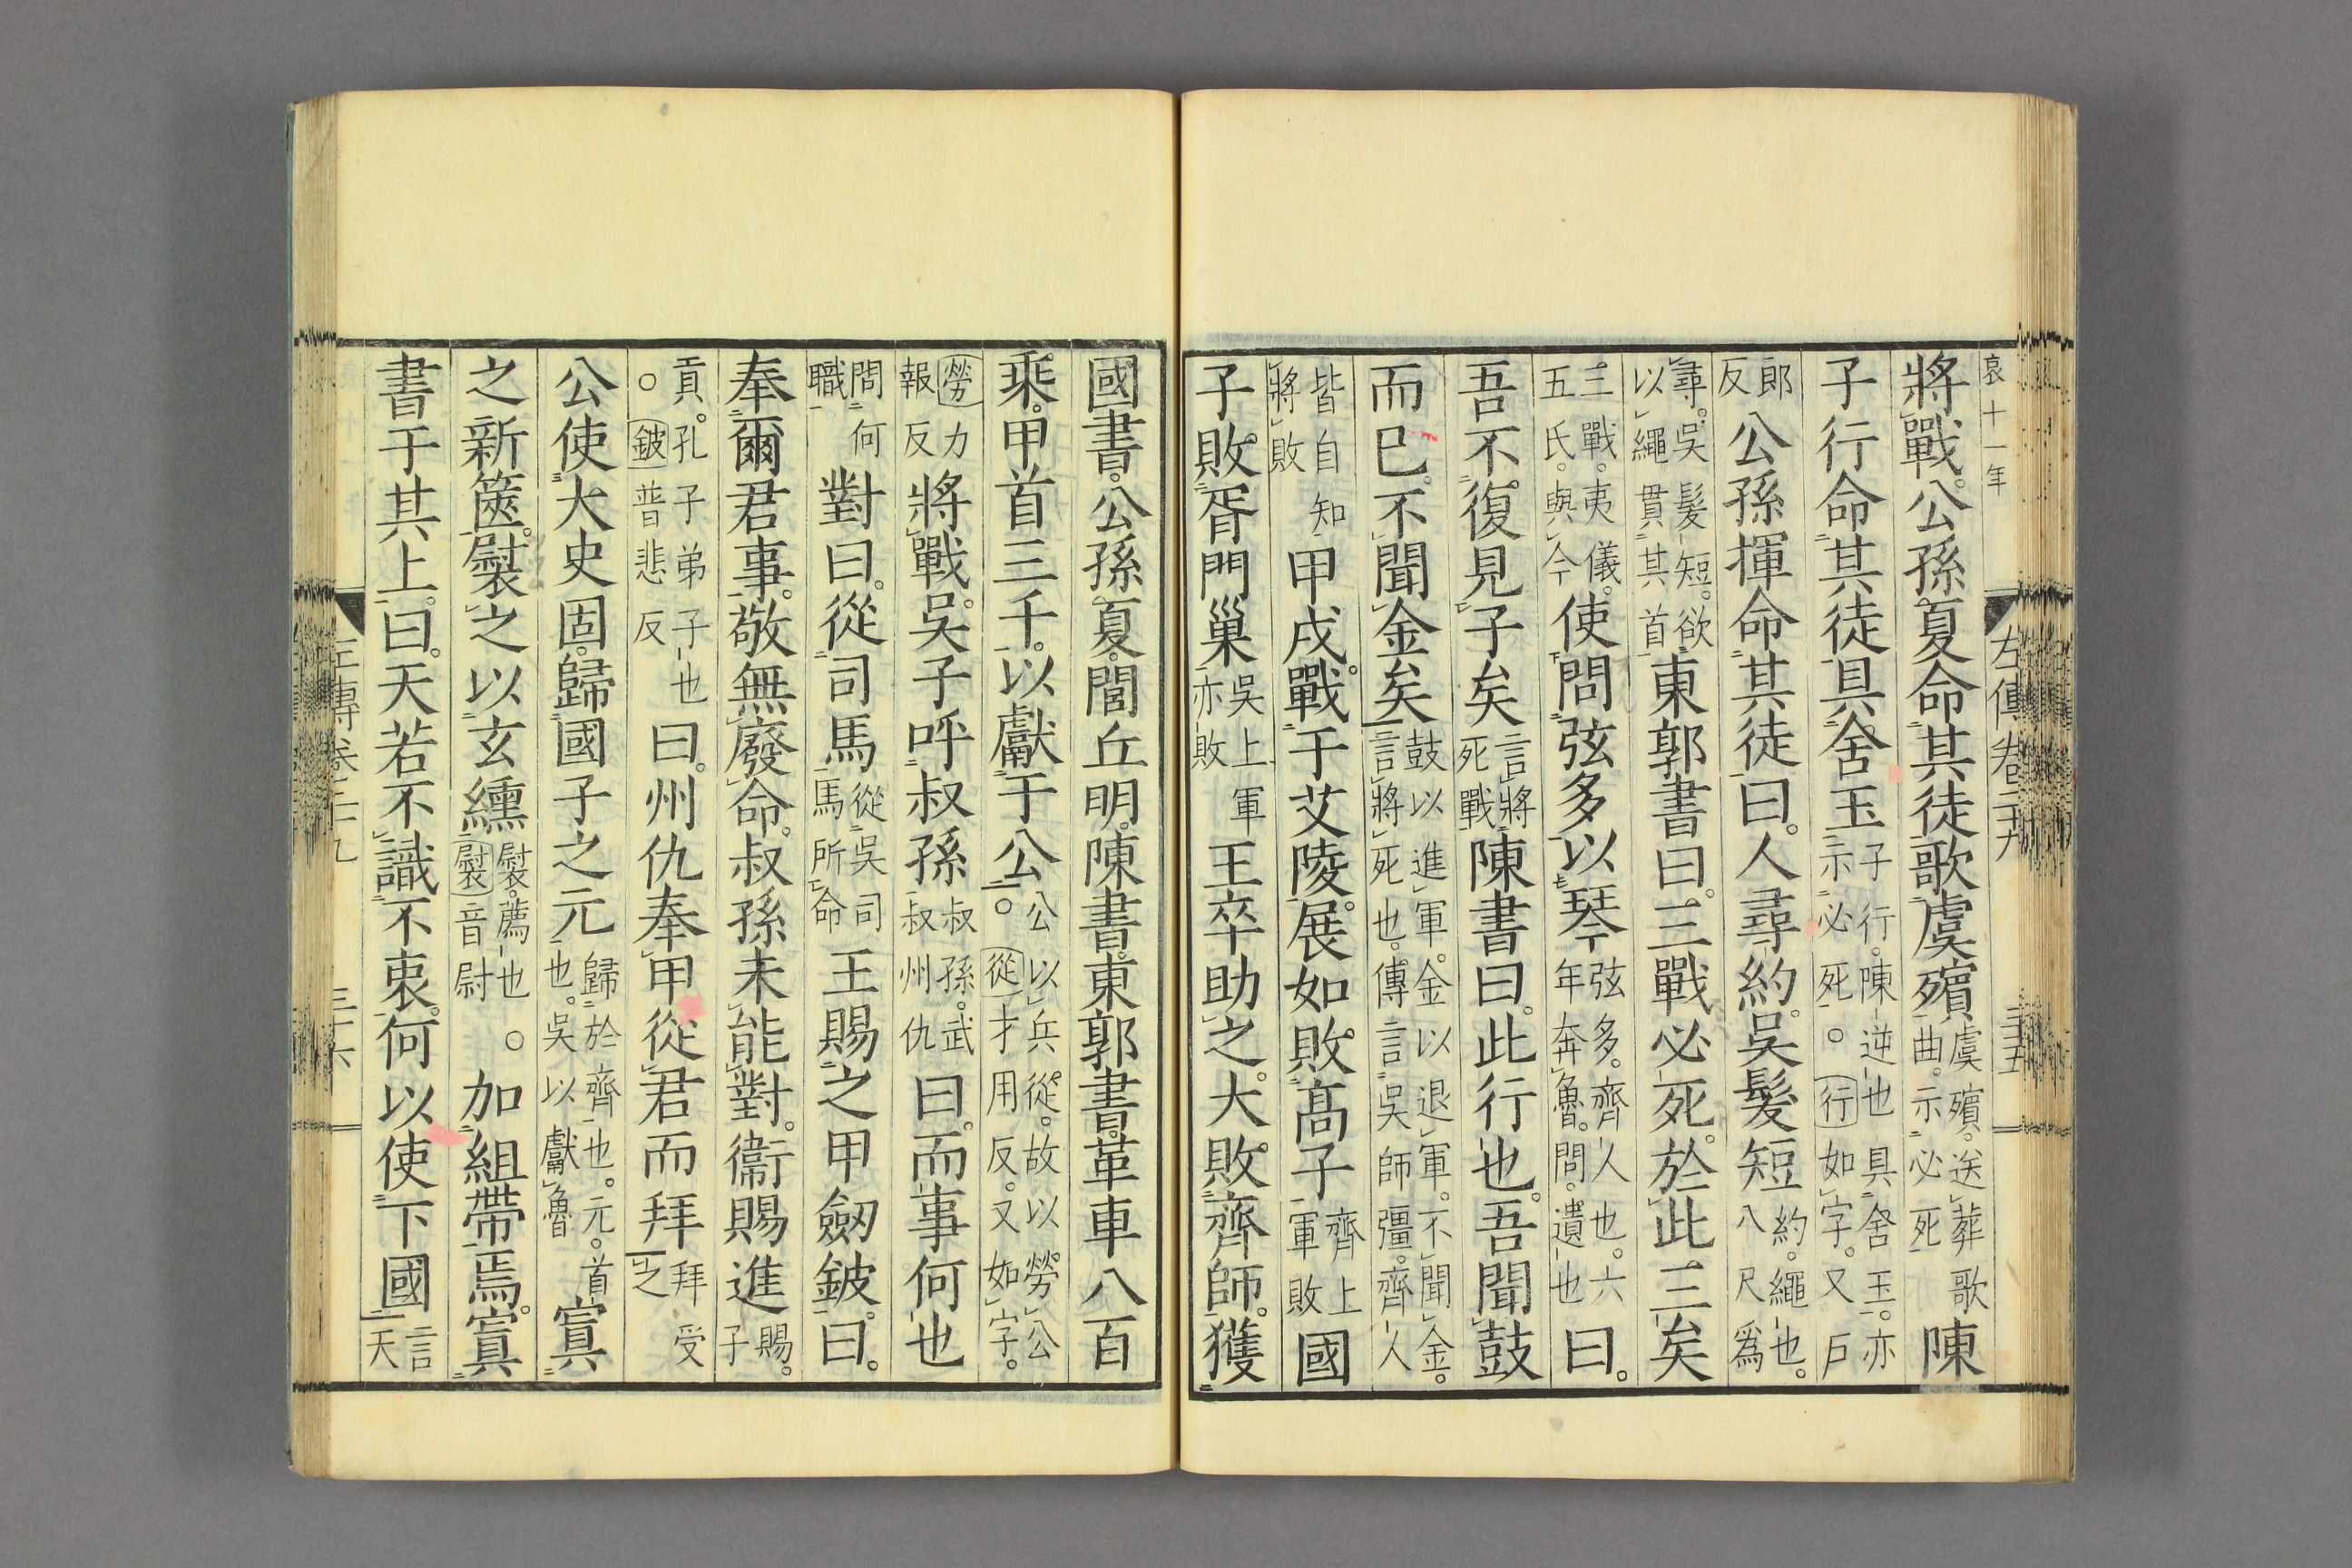 哀十一年
左傳卷二十九
三十五
將戰。公孫夏命其徒歌虞殯虞殯。送葬歌曲。示必死陳
子行命其徒具含玉子行。陳逆也具含玉。亦示必死。○行如字。又戶
郎反公孫揮命其徒曰。人尋約。吳髮短約。繩也。八尺爲
尋。吳髮短。欲以繩貫其首東郭書曰。三戰必死。於此三矣
三戰。夷儀。五氏。與今使問弦多以琴弦多。齊人也。六年奔魯。問。遺也曰。
吾不復見子矣言將死戰陳書曰。此行也。吾聞鼓
而已。不聞金矣鼓以進軍。金以退軍。不聞金。言將死也。傳言吳師彊。齊人
皆自知將敗甲戌。戰于艾陵。展如敗髙子齊上軍敗國
子敗。胥門巢吳上軍亦敗王卒助之。大敗齊師。獲
國書。公孫夏。閭丘明。陳書。東郭書。革車八百
乘。甲首三千。以獻于公公以兵從。故以勞公○從才用反。又如字。
勞力報反將戰。吳子呼叔孫叔孫。武叔州仇曰。而事何也
問何職對曰。從司馬從吳司馬所命王賜之甲劒鈹。曰。
奉爾君事。敬無廢命。叔孫未能對。衞賜進賜。子
貢。孔子弟子也○鈹普悲反曰。州仇奉甲從君而拜拜受之
公使大史固。歸國子之元歸於齊也。元。首也。吳以獻魯寘
之新篋。褽之以玄纁褽。薦也○褽音尉加組帶焉。寘
書于其上。曰。天若不識不衷。何以使下國言天